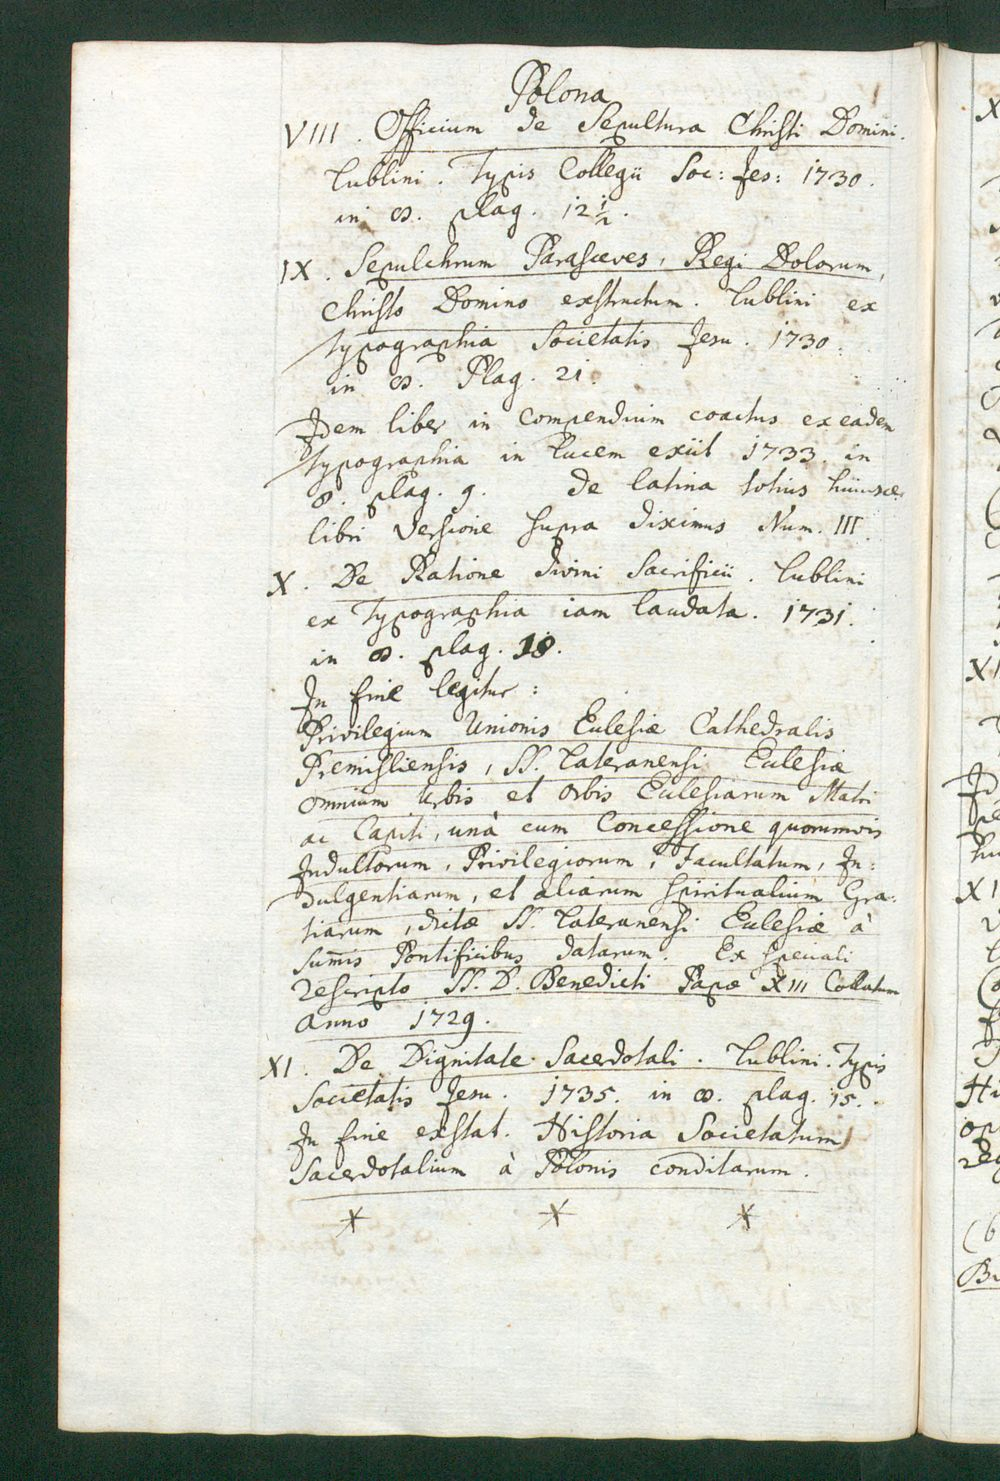 Polona
VIII. Officium de Sepultura Christi Domini.
Lublini. Typis Collegii Soc: Jes: 1730.
in 8. plag. 12 1/2.
IX. Sepulchrum Parasceves, Regi Dolorum,
Christo Domino exstructum. Lublini ex
Typographia Societatis Jesu. 1730.
in 8. Plag. 21.
Idem liber in compendium coactus ex eadem
Typographia in lucem exiit 1733. in
8. plag. 9. De latina totius huiusce
libri versione supra diximus Num. III.
X. De Ratione divini Sacrificii. Lublini
ex Typographia iam laudata. 1731.
in 8. plag. 18.
In fine legitur:
Privilegium Unionis Eclesiæ Cathedralis
Premisliensis, SS. Lateranensi Eclesiæ
omnium Urbis et Orbis Eclesiarum Matri
ac Capiti, unà cum Concessione quorumvis
Indultorum, Privilegiorum, Facultatum, In=
dulgentiarum, et aliarum spiritualium Gra=
tiarum, dictæ SS. Lateranensi Eclesiæ à
Sum̄is Pontificibus datarum. Ex speciali
rescripto SS. D. Benedicti Papæ XIII Collatum
Anno 1729.
XI. De Dignitate Sacerdotali. Lublini. Typis
Societatis Jesu. 1735. in 8. plag. 15.
In fine exstat. Historia Societatum
Sacerdotalium à Polonis conditarum.